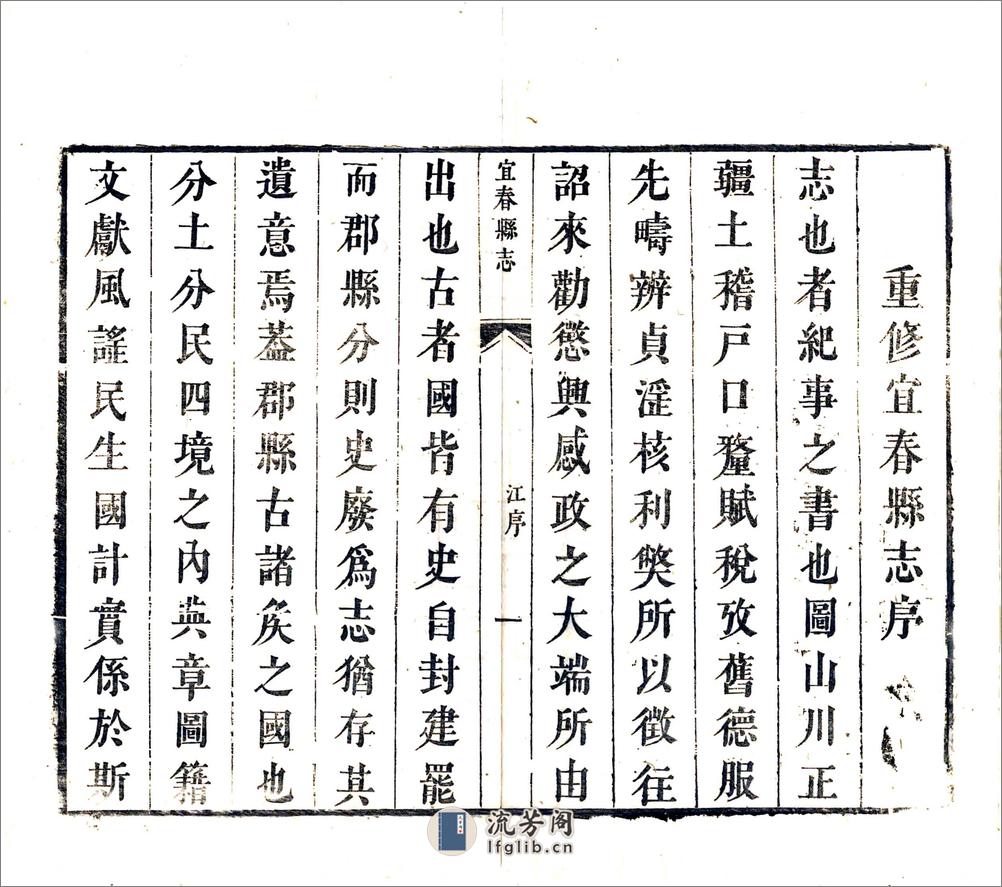 重修宜春縣志序
志也者紀事之書也圖山川正
疆土稽戸口釐賦稅攷舊德服
先疇辨貞淫核利獘所以徵往
詔來勸懲興感政之大端所由
宜春縣志
江序
一
出也古者國皆有史自封建罷
而郡縣分則史廢爲志猶存其
遺意焉葢郡縣古諸矦之國也
分土分民四境之內典章圖籍
文獻風謠民生國計實係於斯
流芳阁
lfglib.cn